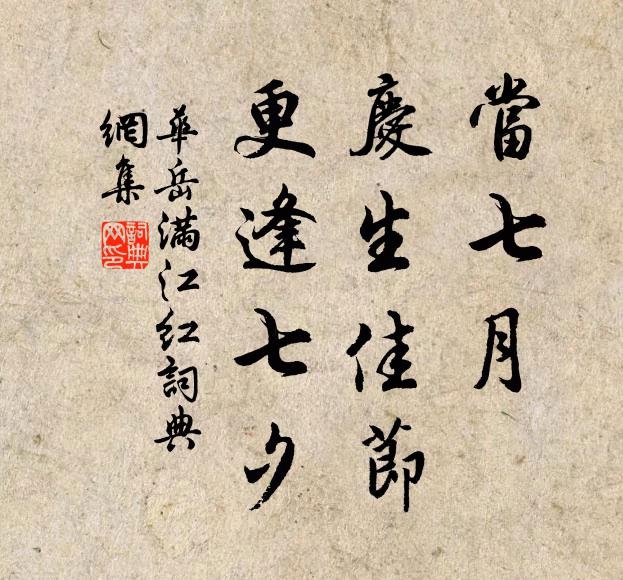 當七月
慶生佳節
更逢七夕
華岳滿江紅詞典
網集
詞典
网印